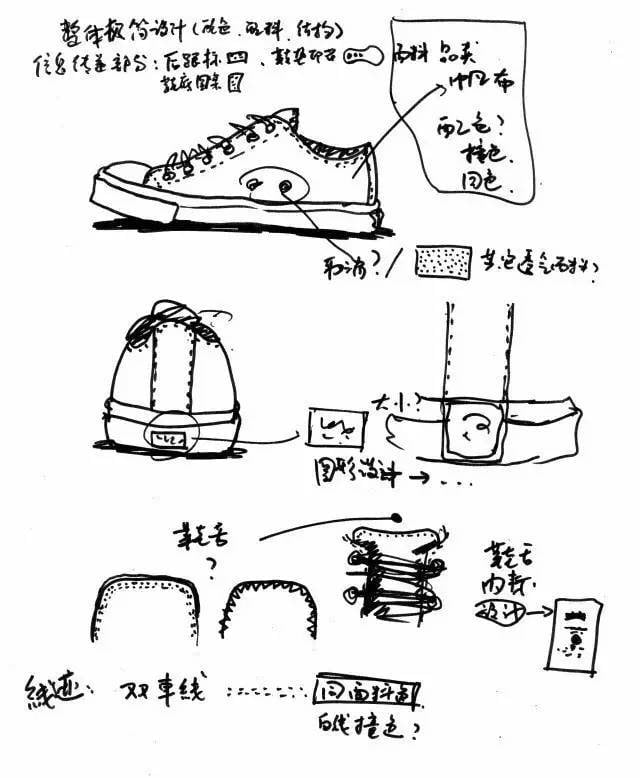 整体极简设计(配色、面料、结构)
信息传递部分:后跟标、鞋垫印刷
鞋底图案
面料 品类
帆布
配色?
撞色.
同色.
取消?/
其它透气面料?
大小?
图形设计→...
鞋舌
?
鞋舌
内标
设计
线迹: 双車线
同面料色
白线撞色?